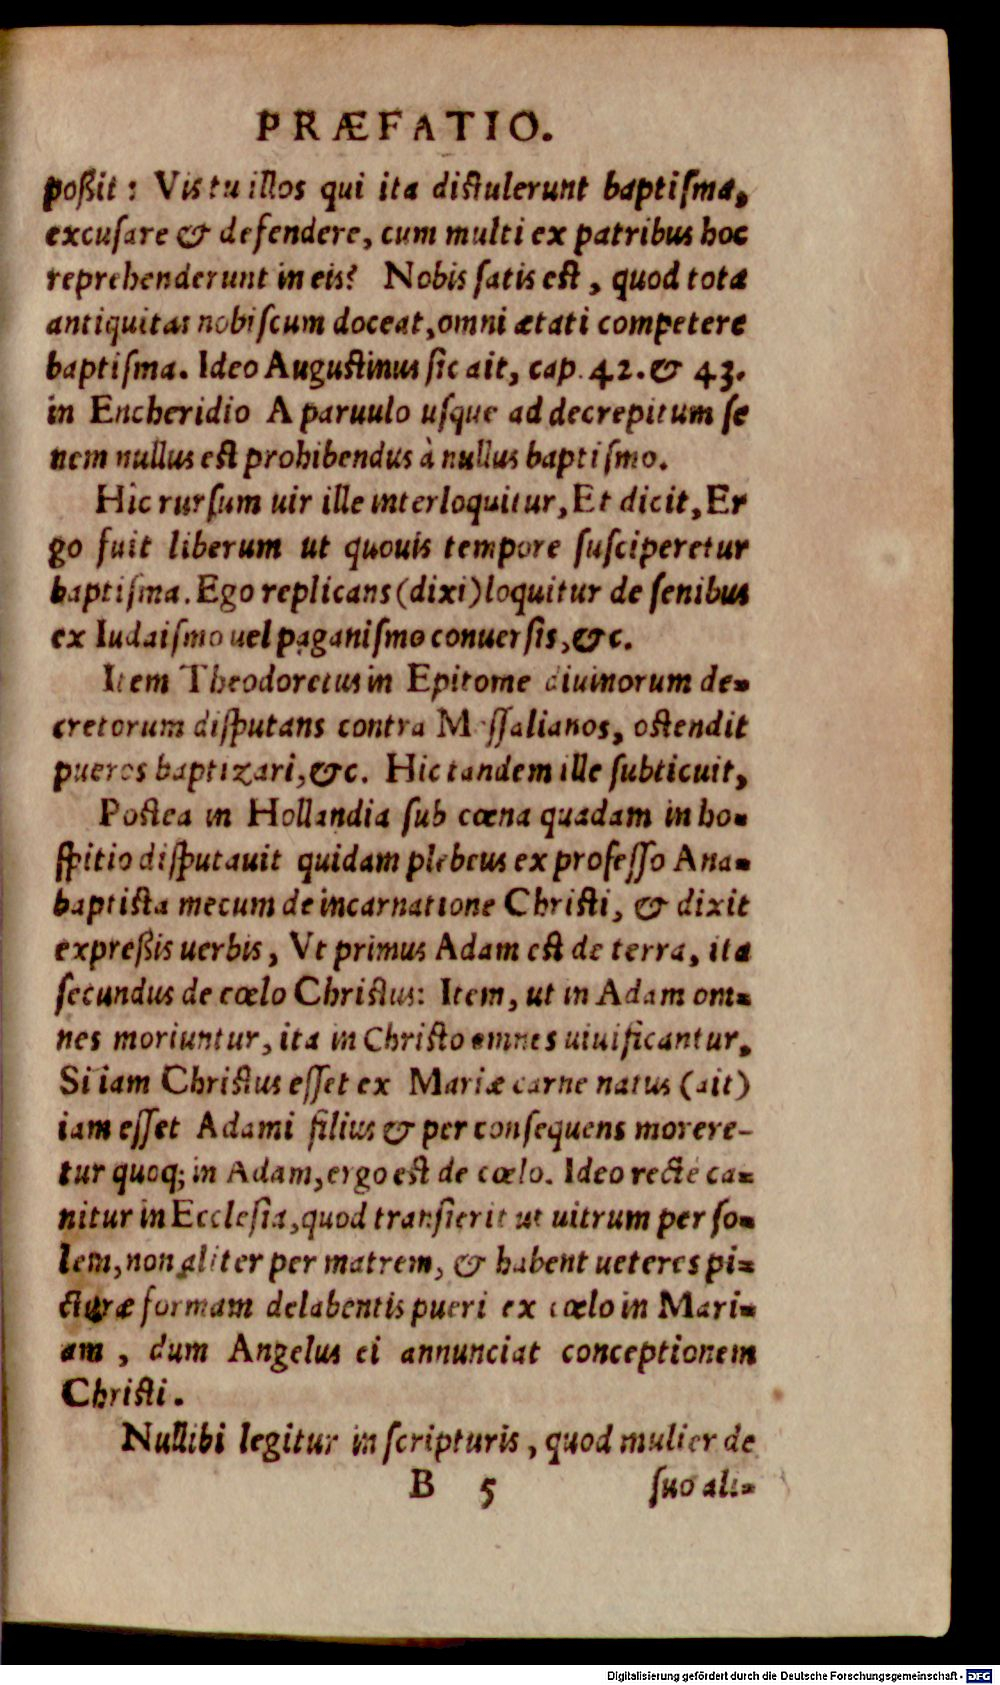 PRÆFATIO.
poßit: Vis tu illos qui ita distulerunt baptiſma,
excuſare & defendere, cum multi ex patribus hoc
reprehenderunt in eis? Nobis ſatis est, quod tota
antiquitas nobiſcum doceat, omni ætati competere
baptiſma. Ideo Augustinus ſic ait, cap. 42. & 43.
in Encheridio A paruulo uſque ad decrepitum ſe
nem nullus est prohibendus à nullus baptiſmo.
Hic rurſum uir ille interloquitur, Et dicit, Er
go fuit liberum ut quouis tempore ſuſciperetur
baptiſma. Ego replicans (dixi) loquitur de ſenibus
ex Iudaiſmo uel paganiſmo conuerſis, &c.
Item Theodoretus in Epitome diuinorum de-
cretorum diſputans contra Meſſalianos, ostendit
pueros baptizari, &c. Hic tandem ille ſubticuit,
Postea in Hollandia ſub cœna quadam in ho-
ſpitio diſputauit quidam plebeus ex profeſſo Ana-
baptista mecum de incarnatione Christi, & dixit
expreßis uerbis, Vt primus Adam est de terra, ita
ſecundus de cœlo Christus: Item, ut in Adam om-
nes moriuntur, ita in Christo omnes uiuificantur.
Si iam Christus eſſet ex Mariæ carne natus (ait)
iam eſſet Adami filius & per conſequens morere-
tur quoq; in Adam, ergo est de cœlo. Ideo recte ca-
nitur in Eccleſia, quod tranſierit ut uitrum per ſo-
lem, non aliter per matrem, & habent ueteres pi-
cturæ formam delabentis pueri ex cœlo in Mari-
am, dum Angelus ei annunciat conceptionem
Christi.
Nullibi legitur in ſcripturis, quod mulier de
B 5 ſuo ali-
Digitalisierung gefördert durch die Deutsche Forschungsgemeinschaft - DFG